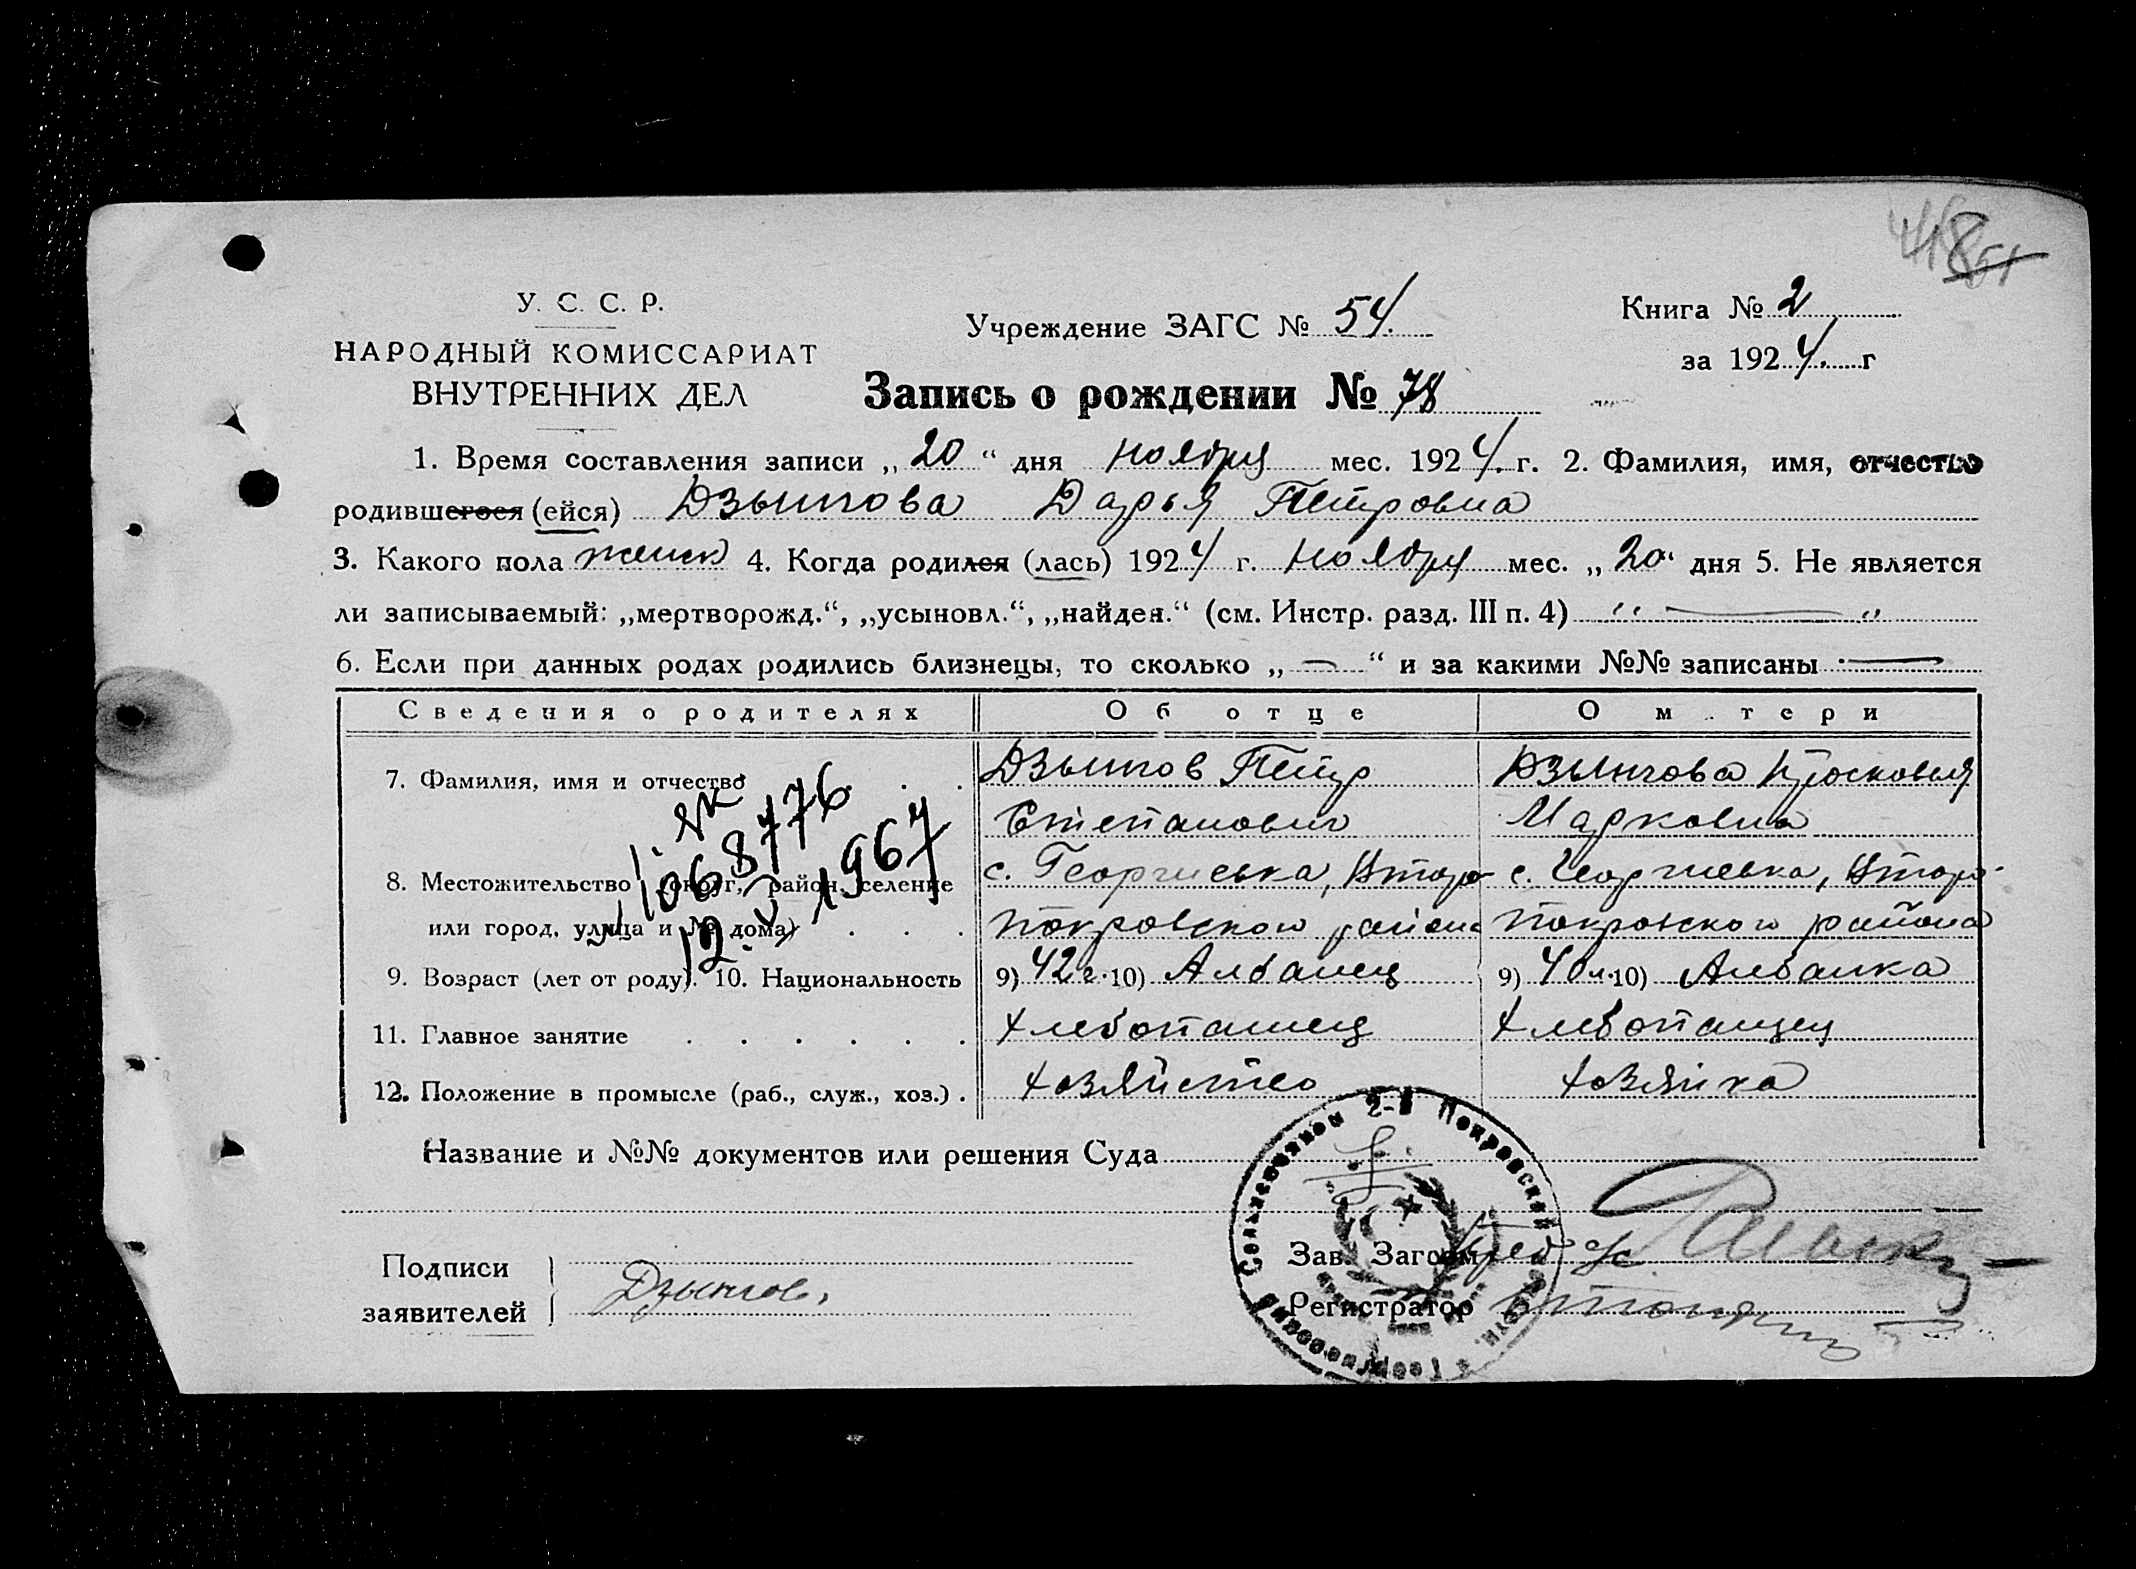 У. С. С. Р.
НАРОДНЫЙ КОМИССАРИАТ
ВНУТРЕННИХ ДЕЛ
Учреждение ЗАГС № 54.
Книга № 2
за 1924. г
Запись о рождении № 78
1. Время составления записи „20“ дня ноября мес. 1924. г. 2. Фамилия, имя, отчество
родившегося (ейся) Дзынгова Дарья Петровна
3. Какого пола женск 4. Когда родился (лась) 1924 г. ноября мес. „20“ дня 5. Не является
ли записываемый: „мертворожд.“, „усыновл.“, „найден.“ (см. Инстр. разд. III п. 4) „ — „
6. Если при данных родах родились близнецы, то сколько „ — “ и за какими №№ записаны —
Сведения о родителях Об отце О м тери
7. Фамилия, имя и отчество . . . Дзынгов Петр Дзынгова Просковия
Степанович Марковна
8. Местожительство (округ, район, селение с. Георгиевка, Второ- с. Георгиевка, Второ-
или город, улица и № дома) . . . Покровского района Покровского района
9. Возраст (лет от роду). 10. Национальность 9) 42 г. 10) Албанец 9) 40 л. 10) Албанка
11. Главное занятие . . . . . . Хлебопашец Хлебопашец
12. Положение в промысле (раб., служ., хоз.) . Хозяйство Хозяйка
1068776
12. V 1967
Название и №№ документов или решения Суда
Подписи
заявителей Дзынгов
Зав. Загсом
Регистратор
Сельисполком 2-й Покровский
Георгиевский